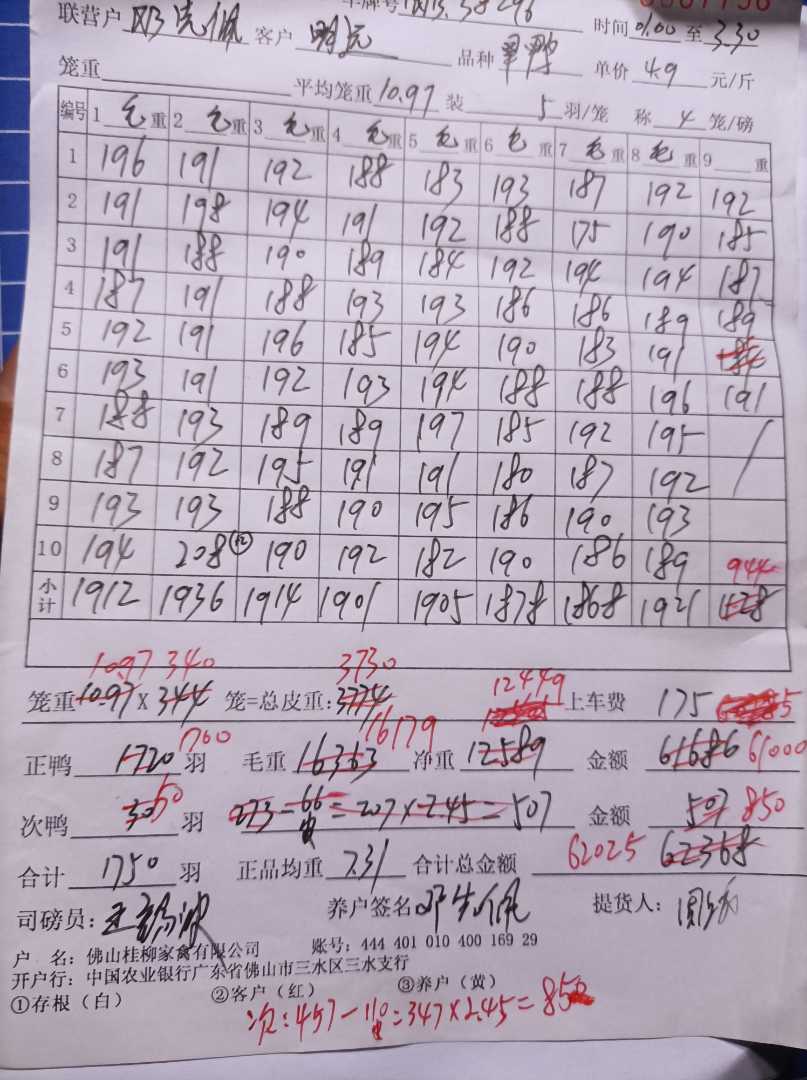 联营户 邓 佩 客户 明远 车牌号 38296 时间 01.00 至 3.30
品种 单价 4.9 元/斤
笼重 平均笼重 10.97 装 5 羽/笼 称 4 笼/磅
编号 1 毛 重 2 毛 重 3 毛 重 4 毛 重 5 毛 重 6 毛 重 7 毛 重 8 毛 重 9 重
1 196 191 192 188 183 193 187 192 192
2 191 198 194 191 192 188 175 190 185
3 191 188 190 189 184 192 194 194 187
4 187 191 188 193 193 186 186 189 189
5 192 191 196 185 194 190 183 191
6 193 191 192 193 194 188 188 196 191
7 188 193 189 189 197 185 192 195
8 187 192 195 191 191 180 187 192
9 193 193 188 190 195 186 190 193
10 194 208 190 192 182 190 186 189 944
小计 1912 1936 1914 1901 1905 1878 1868 1921 1128
10.97 340 3730 12449
笼重 10.97 x 344 笼=总皮重: 3774 上车费 175
1700 16179
正鸭 1720 羽 毛重 16363 净重 12589 金额 61686 61000
次鸭 30 50 羽 273-66=207×2.45=507 金额 507 850
合计 1750 羽 正品均重 7.31 合计总金额 62025 62368
司磅员: 养户签名 提货人:
户 名: 佛山桂柳家禽有限公司 账号: 444 401 010 400 169 29
开户行: 中国农业银行广东省佛山市三水区三水支行
①存根（白） ②客户（红） ③养户（黄）
次: 457-110=347×2.45=850